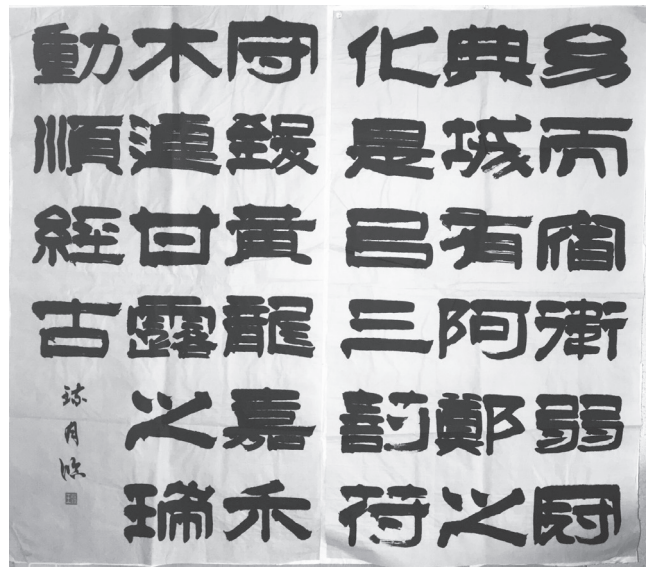 幼而宿衛弱冠
典城有阿鄭之
化是㠯三剖符
守致黃龍嘉禾
木連甘露之瑞
動順經古
月臨